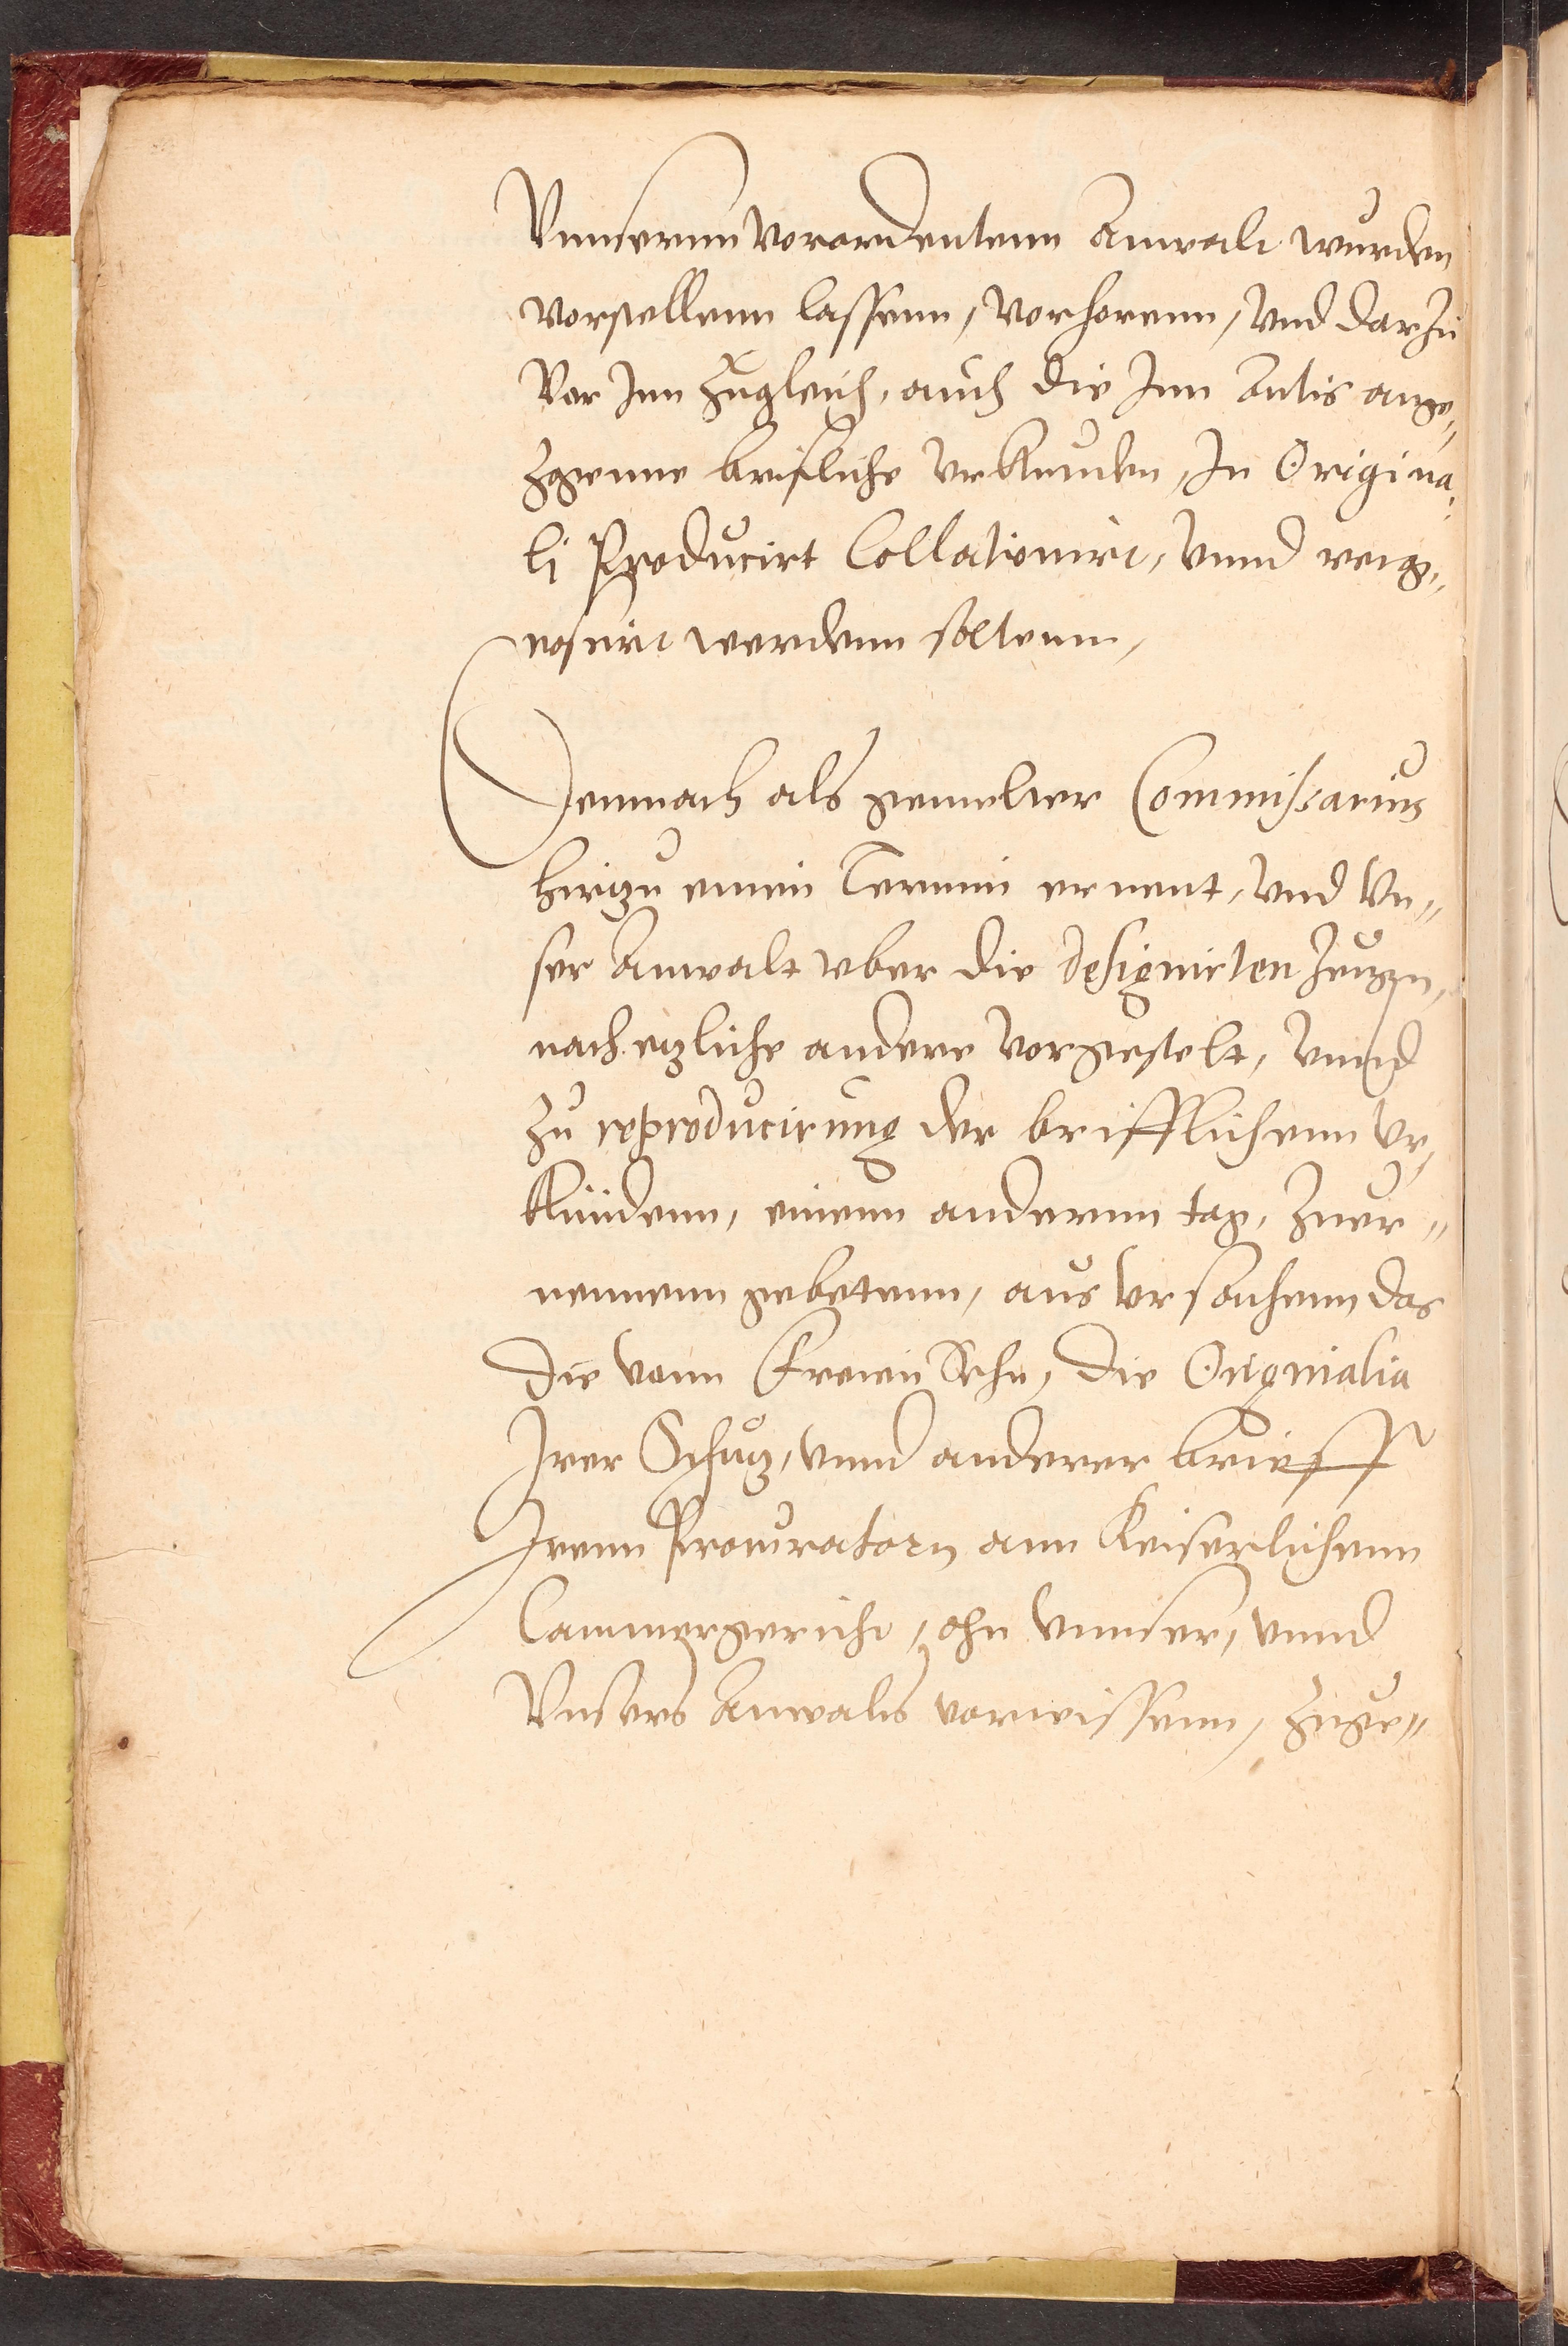 Vnnserenn vorordentenn Anwalt wurden
vorstellenn lassenn, vorhorenn, vnd darzu
vor Jnn zugleich, auch die Jnn Actis ange„
zogenne brifliche vrkunden, Jn Origina„
li Producirt Collationirt, vnnd recog„
noscirt werdenn soltenn,
Demnach als gemelter Commissarius
hirtzu einen Termin ernent, vnd vn„
ser Anwalt vber die designirten Zeugen,
noch etzliche andere vorgestelt, vnnd
zu reproducirung der brifflichenn vr„
kundenn, einenn anderenn tag, zuer„
nennenn gebetenn, aus vrsachenn das
die vonn Freien Sehn, die Originalia
Jrer Schutz, vnnd anderer brieff
Jrenn Procuratorn ann Keiserlichenn
Cammergericht, ohn vnnser, vnnd
Vnsers Anwalts vorwissenn, zuge„